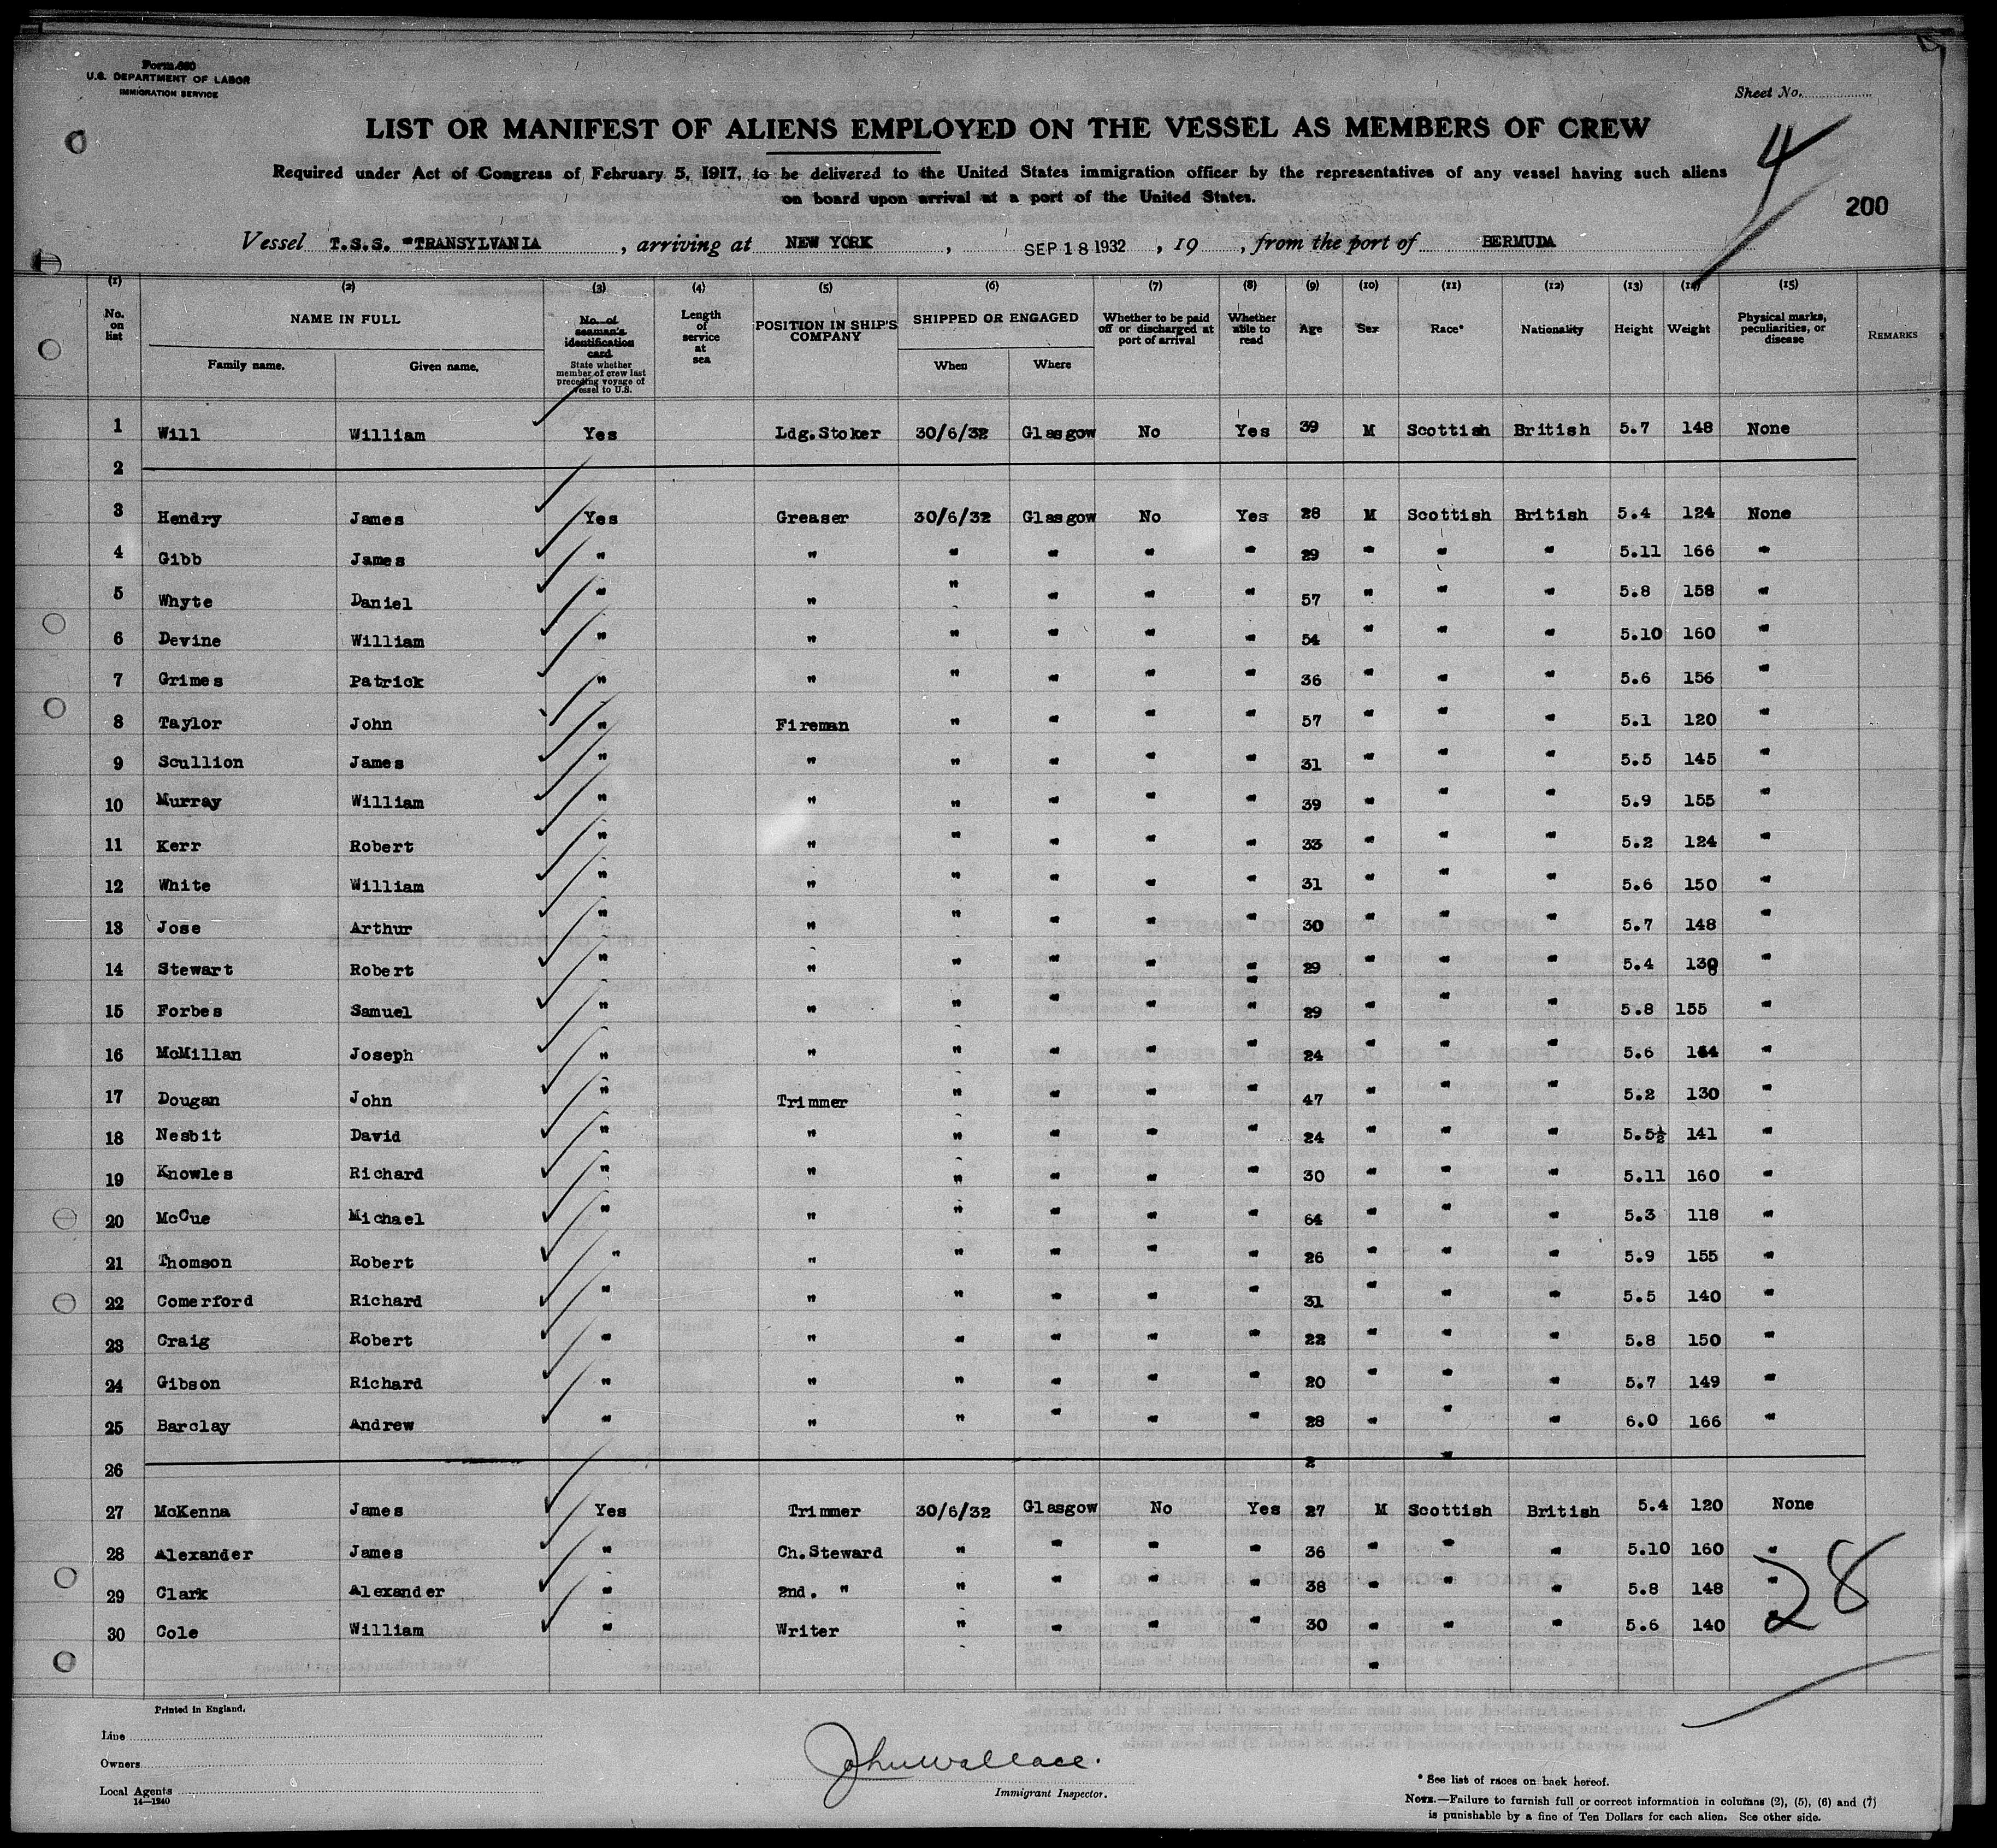 Form 680
U.S. DEPARTMENT OF LABOR
IMMIGRATION SERVICE
Sheet No.
LIST OR MANIFEST OF ALIENS EMPLOYED ON THE VESSEL AS MEMBERS OF CREW
4
Required under Act of Congress of February 5, 1917, to be delivered to the United States immigration officer by the representatives of any vessel having such aliens
on board upon arrival at a port of the United States.
200
Vessel T.S.S. "TRANSYLVANIA , arriving at NEW YORK , SEP 18 1932 , 19 , from the port of BERMUDA
(1) (2) (3) (4) (5) (6) (7) (8) (9) (10) (11) (12) (13) (14) (15)
No. on list NAME IN FULL Family name. Given name. No. of seaman's identification card. State whether member of crew last preceding voyage of vessel to U.S. Length of service at sea POSITION IN SHIP'S COMPANY SHIPPED OR ENGAGED When Where Whether to be paid off or discharged at port of arrival Whether able to read Age Sex Race* Nationality Height Weight Physical marks, peculiarities, or disease REMARKS
1 Will William Yes Ldg.Stoker 30/6/32 Glasgow No Yes 39 M Scottish British 5.7 148 None
2
3 Hendry James Yes Greaser 30/6/32 Glasgow No Yes 28 M Scottish British 5.4 124 None
4 Gibb James " " " " " " 29 " " " 5.11 166 "
5 Whyte Daniel " " " " " " 57 " " " 5.8 158 "
6 Devine William " " " " " " 54 " " " 5.10 160 "
7 Grimes Patrick " " " " " " 36 " " " 5.6 156 "
8 Taylor John " Fireman " " " " 57 " " " 5.1 120 "
9 Scullion James " " " " " " 31 " " " 5.5 145 "
10 Murray William " " " " " " 39 " " " 5.9 155 "
11 Kerr Robert " " " " " " 33 " " " 5.2 124 "
12 White William " " " " " " 31 " " " 5.6 150 "
13 Jose Arthur " " " " " " 30 " " " 5.7 148 "
14 Stewart Robert " " " " " " 29 " " " 5.4 "
15 Forbes Samuel " " " " " " 29 " " " 5.8 155 "
16 McMillan Joseph " " " " " " 24 " " " 5.6 "
17 Dougan John " Trimmer " " " " 47 " " " 5.2 130 "
18 Nesbit David " " " " " " 24 " " " 5.5½ 141 "
19 Knowles Richard " " " " " " 30 " " " 5.11 160 "
20 McCue Michael " " " " " " 64 " " " 5.3 118 "
21 Thomson Robert " " " " " " 26 " " " 5.9 155 "
22 Comerford Richard " " " " " " 31 " " " 5.5 140 "
23 Craig Robert " " " " " " 22 " " " 5.8 150 "
24 Gibson Richard " " " " " " 20 " " " 5.7 149 "
25 Barclay Andrew " " " " " " 28 " " " 6.0 166 "
26 2 "
27 McKenna James Yes Trimmer 30/6/32 Glasgow No Yes 27 M Scottish British 5.4 120 None
28 Alexander James " Ch.Steward " " " " 36 " " " 5.10 160 "
29 Clark Alexander " 2nd. " " " " " 38 " " " 5.8 148 "
30 Cole William " Writer " " " " 30 " " " 5.6 140 "
28
Printed in England.
Line
Owners
Local Agents
14—1240
John Wallace.
Immigrant Inspector.
* See list of races on back hereof.
NOTE.—Failure to furnish full or correct information in columns (2), (5), (6) and (7)
is punishable by a fine of Ten Dollars for each alien. See other side.